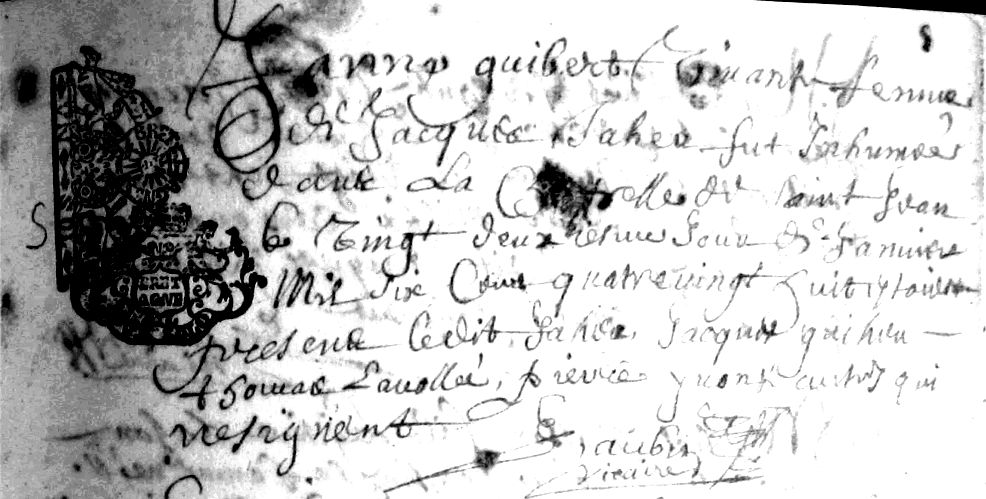 Janne guibert vivant femme
de Jacques Jahea fut Inhumée
dans La Chapelle de Saint Jean
le vingt deuxiesme Jour de Janvier
Mil six Cens quatrevingt huit y estoient
presens Ledit Jahea, Jacques guiheu
thomas Lavollée, pierre yvon et autres qui
ne signent
vicaire